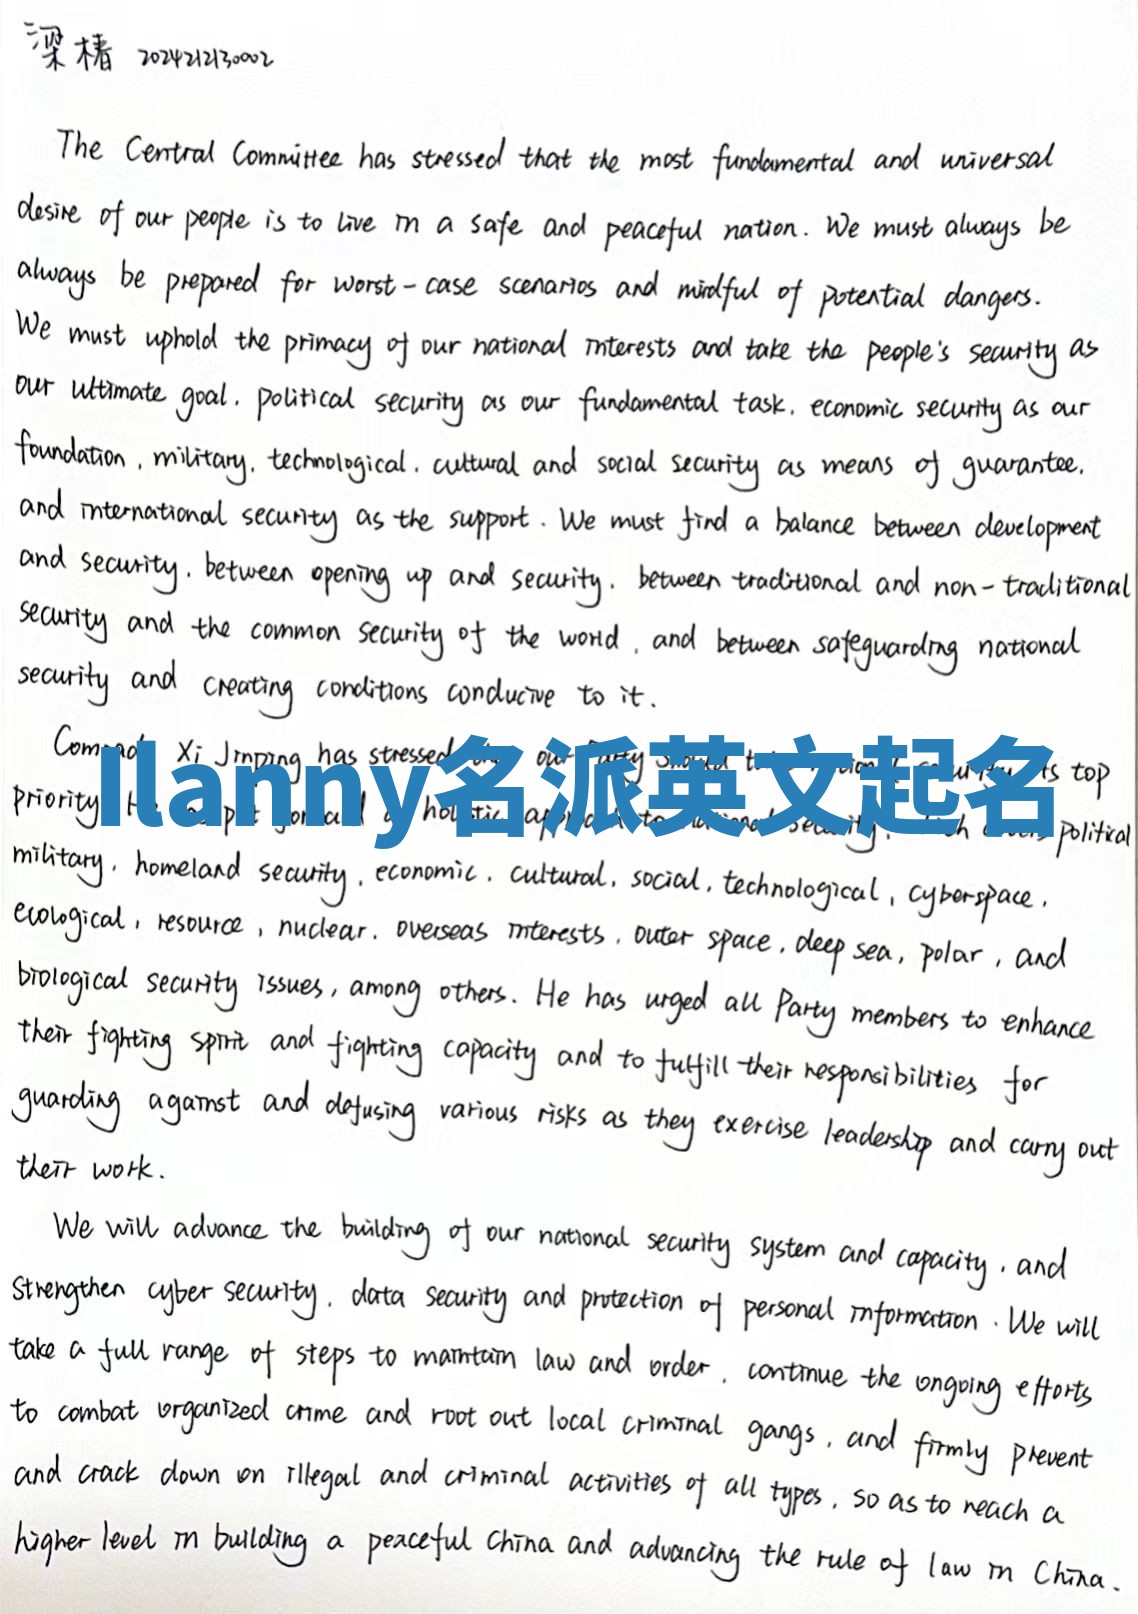 梁椿 2024212130002
The Central Committee has stressed that the most fundamental and universal
desire of our people is to live in a safe and peaceful nation. We must always be
always be prepared for worst-case scenarios and mindful of potential dangers.
We must uphold the primacy of our national interests and take the people's security as
our ultimate goal, political security as our fundamental task, economic security as our
foundation, military, technological, cultural and social security as means of guarantee,
and international security as the support. We must find a balance between development
and security, between opening up and security, between traditional and non-traditional
security and the common security of the world, and between safeguarding national
security and creating conditions conducive to it.
Xi Jinping has stressed our top
Ilanny名派英文起名
priority political
military, homeland security, economic, cultural, social, technological, cyberspace,
ecological, resource, nuclear, overseas interests, outer space, deep sea, polar, and
biological security issues, among others. He has urged all Party members to enhance
their fighting spirit and fighting capacity and to fulfill their responsibilities for
guarding against and defusing various risks as they exercise leadership and carry out
their work.
We will advance the building of our national security system and capacity, and
strengthen cyber security, data security and protection of personal information. We will
take a full range of steps to maintain law and order, continue the ongoing efforts
to combat organized crime and root out local criminal gangs, and firmly prevent
and crack down on illegal and criminal activities of all types, so as to reach a
higher level in building a peaceful China and advancing the rule of law in China.